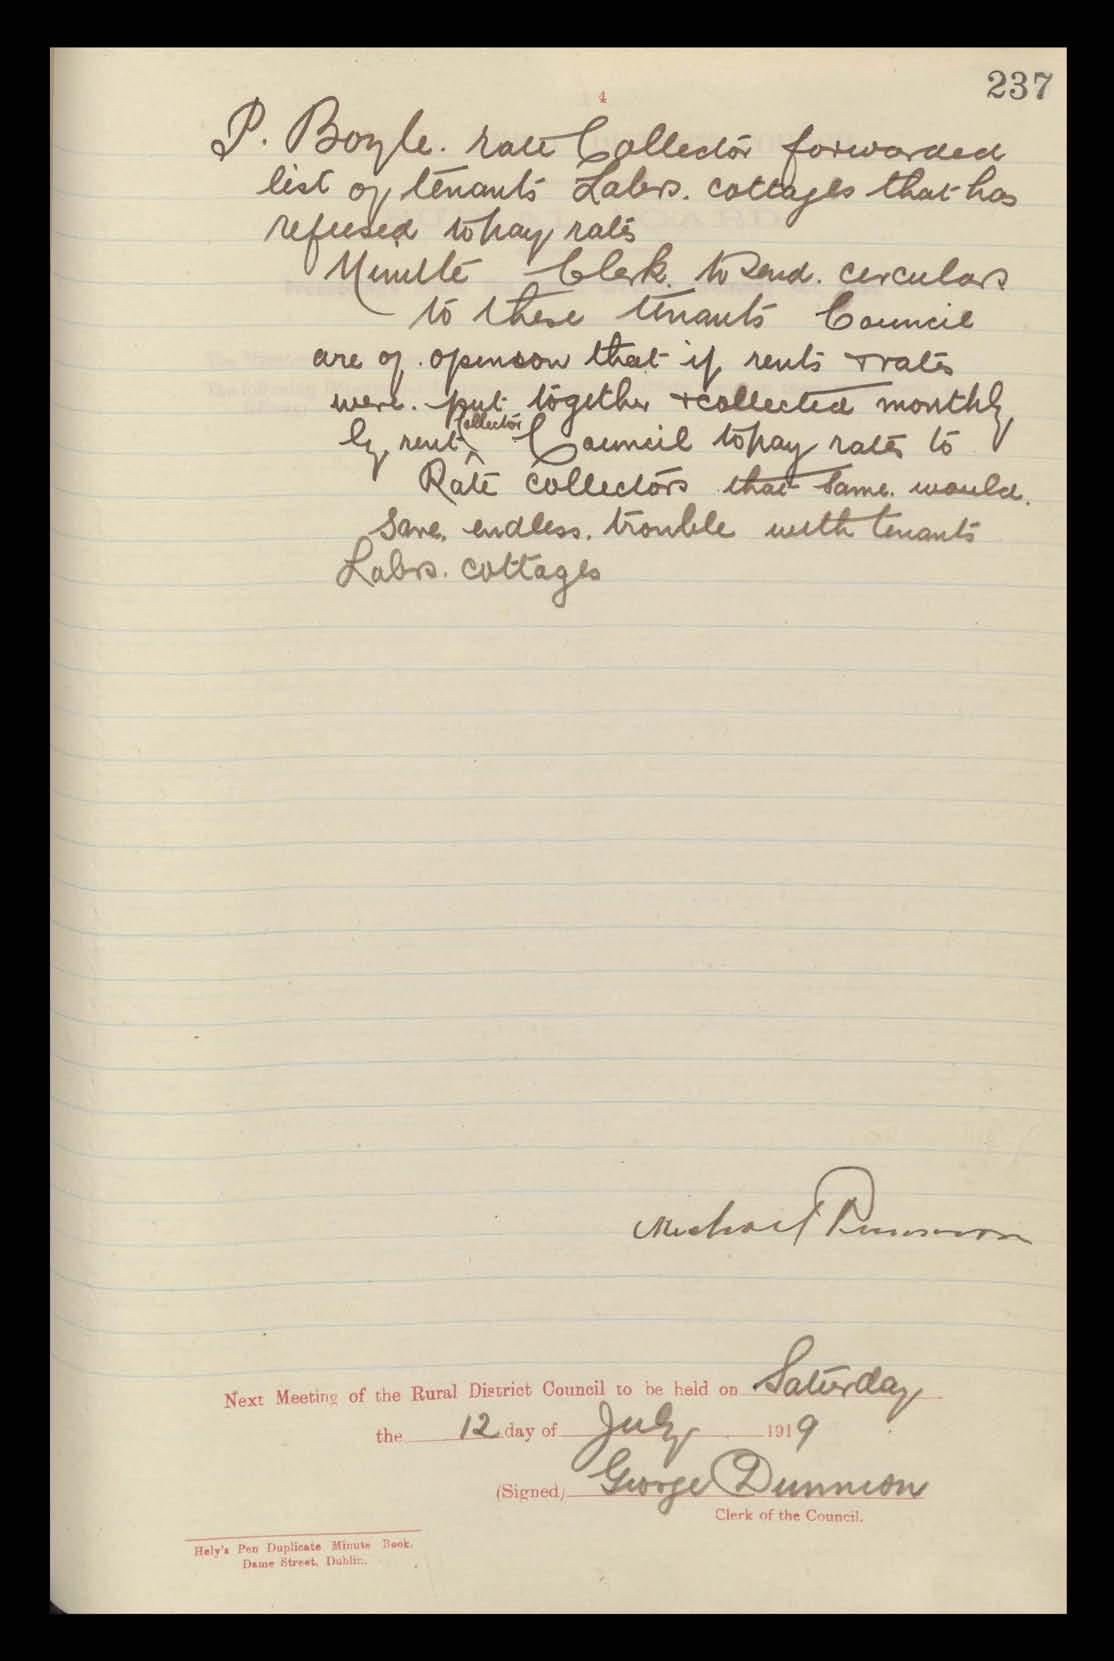 237
4
P. Boyle. rate Collector forwarded
list of tenants Labrs. cottages that has
refused to pay rates
Minute Clerk. to send. circulars
to these tenants Council
are of. opinson that if rents + rates
were. put together + collected monthly
Collector
by rent ^ Council to pay rates to
Rate collectors that same. would.
save. endless. trouble with tenants
Labrs. cottages
Michael
Next Meeting of the Rural District Council to be held on Saturday
the 12 day of July 1919
(Signed) George Dunnion
Clerk of the Council.
Hely's Pen Duplicate Minute Book.
Dame Street, Dublin.